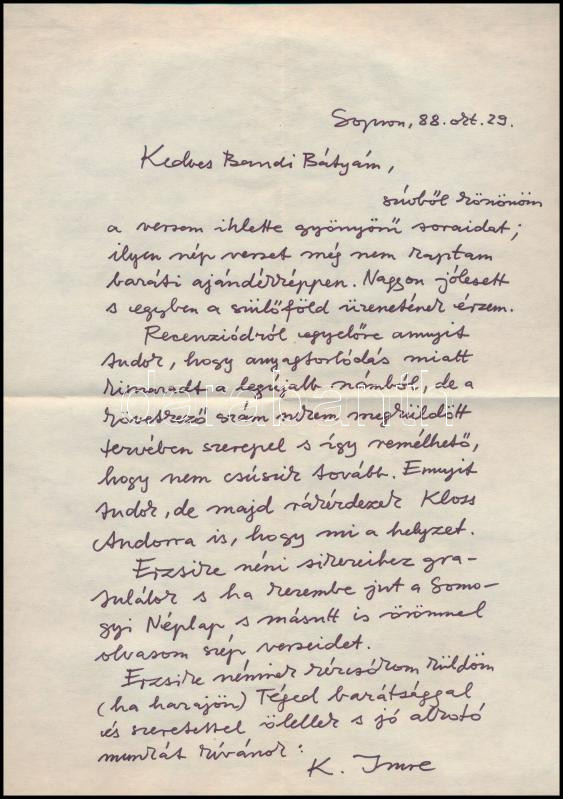 Sopron, 88. okt. 29.
Kedves Bandi Bátyám,
szívből köszönöm
a versem ihlette gyönyörű soraidat;
ilyen szép verset még nem kaptam
baráti ajándékképpen. Nagyon jólesett
s egyben a szülőföld üzenetének érzem.
Recenziódról egyelőre annyit
tudok, hogy anyagtorlódás miatt
kimaradt a legújabb számból, de a
következő szám nekem megküldött
tervében szerepel s így remélhető,
hogy nem csúszik tovább. Ennyit
tudok, de majd rákérdezek Kloss
Andorra is, hogy mi a helyzet.
Erzsike néni sikereihez gra-
tulálok s ha kezembe jut a Somo-
gyi Néplap s másutt is örömmel
olvasom szép verseidet.
Erzsike néninek kézcsókom küldöm
(ha hazajön) Téged barátsággal
és szeretettel ölellek s jó alkotó
munkát kívánok:
K. Imre
darabanth